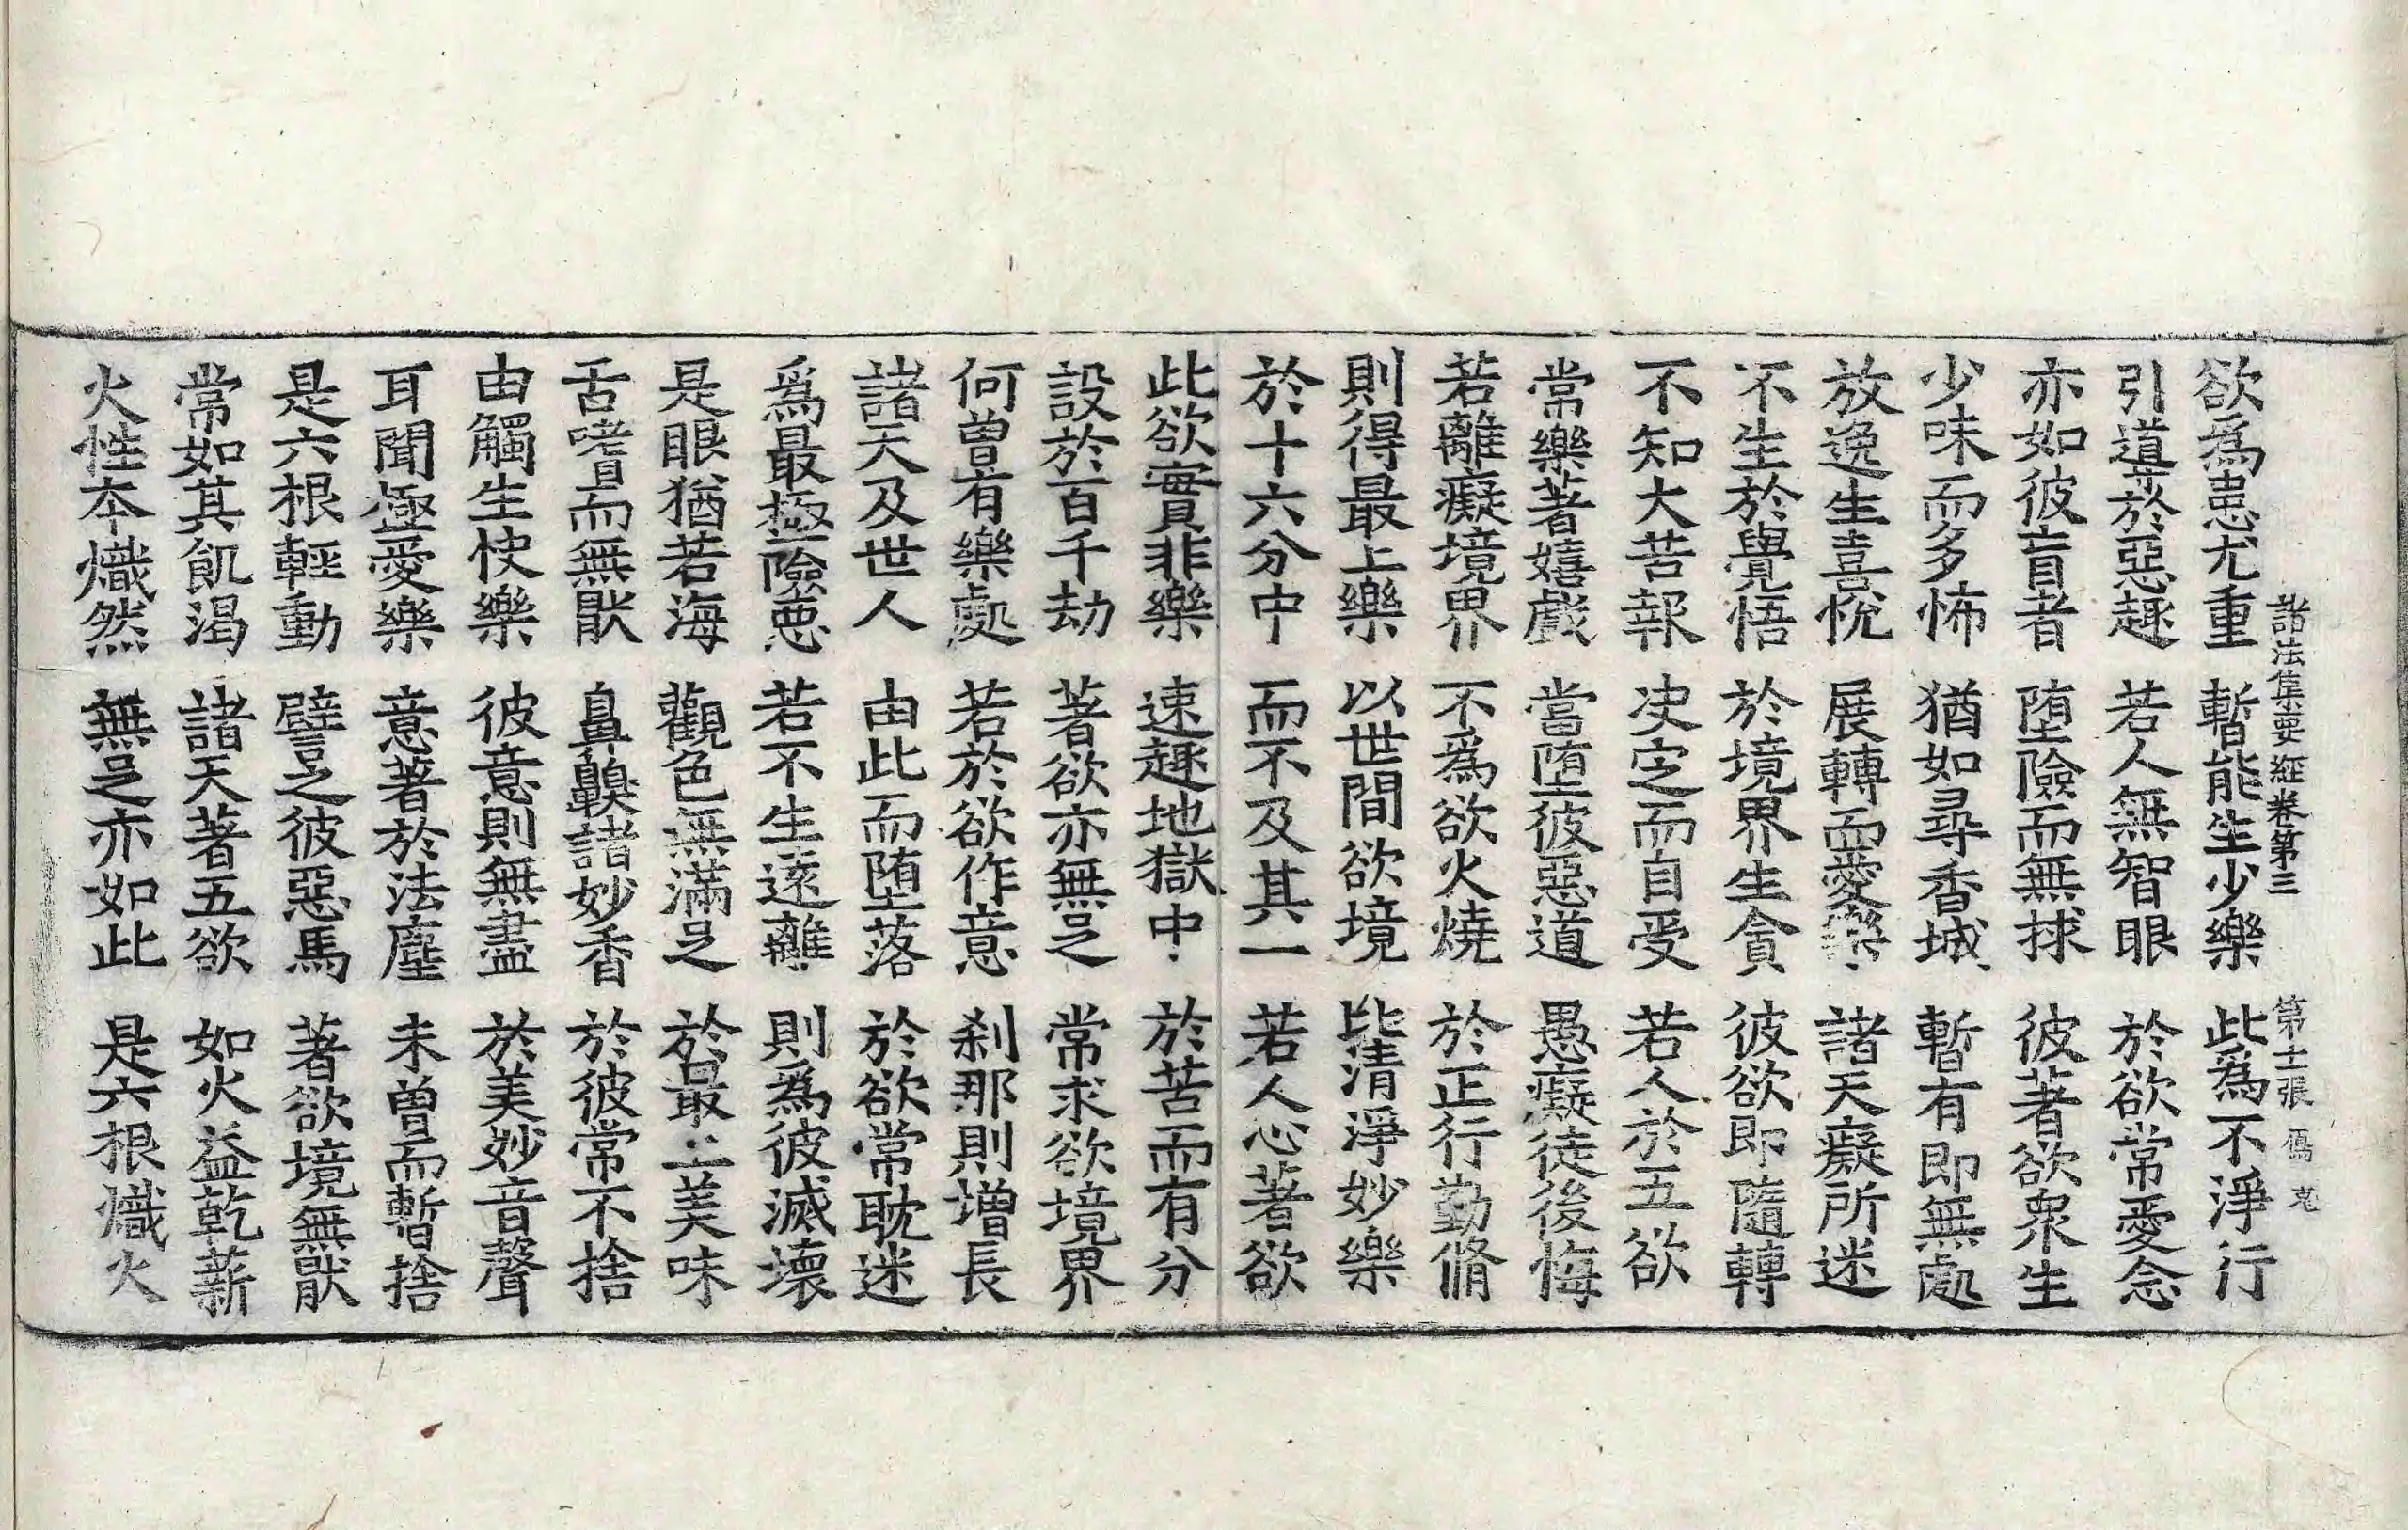 諸法集要經卷第三 第十二張 馮 克
欲爲患尤重 暫能生少樂 此爲不淨行
引導於惡趣 若人無智眼 於欲常愛念
亦如彼盲者 墮險而無捄 彼著欲衆生
少味而多怖 猶如尋香城 暫有即無處
放逸生喜恱 展轉而愛樂 諸天癡所迷
不生於覺悟 於境界生貪 彼欲即隨轉
不知大苦報 决定而自受 若人於五欲
常樂著嬉戲 當墮彼惡道 愚癡徒後悔
若離癡境界 不爲欲火燒 於正行勤脩
則得最上樂 以世間欲境 比清淨妙樂
於十六分中 而不及其一 若人心著欲
此欲實非樂 速趣地獄中 於苦而有分
設於百千劫 著欲亦無足 常求欲境界
何曽有樂處 若於欲作意 刹那則增長
諸天及世人 由此而墮落 於欲常耽迷
爲最極險惡 若不生遠離 則爲彼滅壞
是眼猶若海 觀色無滿足 於最上美味
舌嗜而無猒 鼻齅諸妙香 於彼常不捨
由觸生快樂 彼意則無盡 於美妙音聲
耳聞極愛樂 意著於法塵 未曽而暫捨
是六根輕動 譬之彼惡馬 著欲境無猒
常如其飢渴 諸天著五欲 如火益乾薪
火性本熾然 無足亦如此 是六根熾火